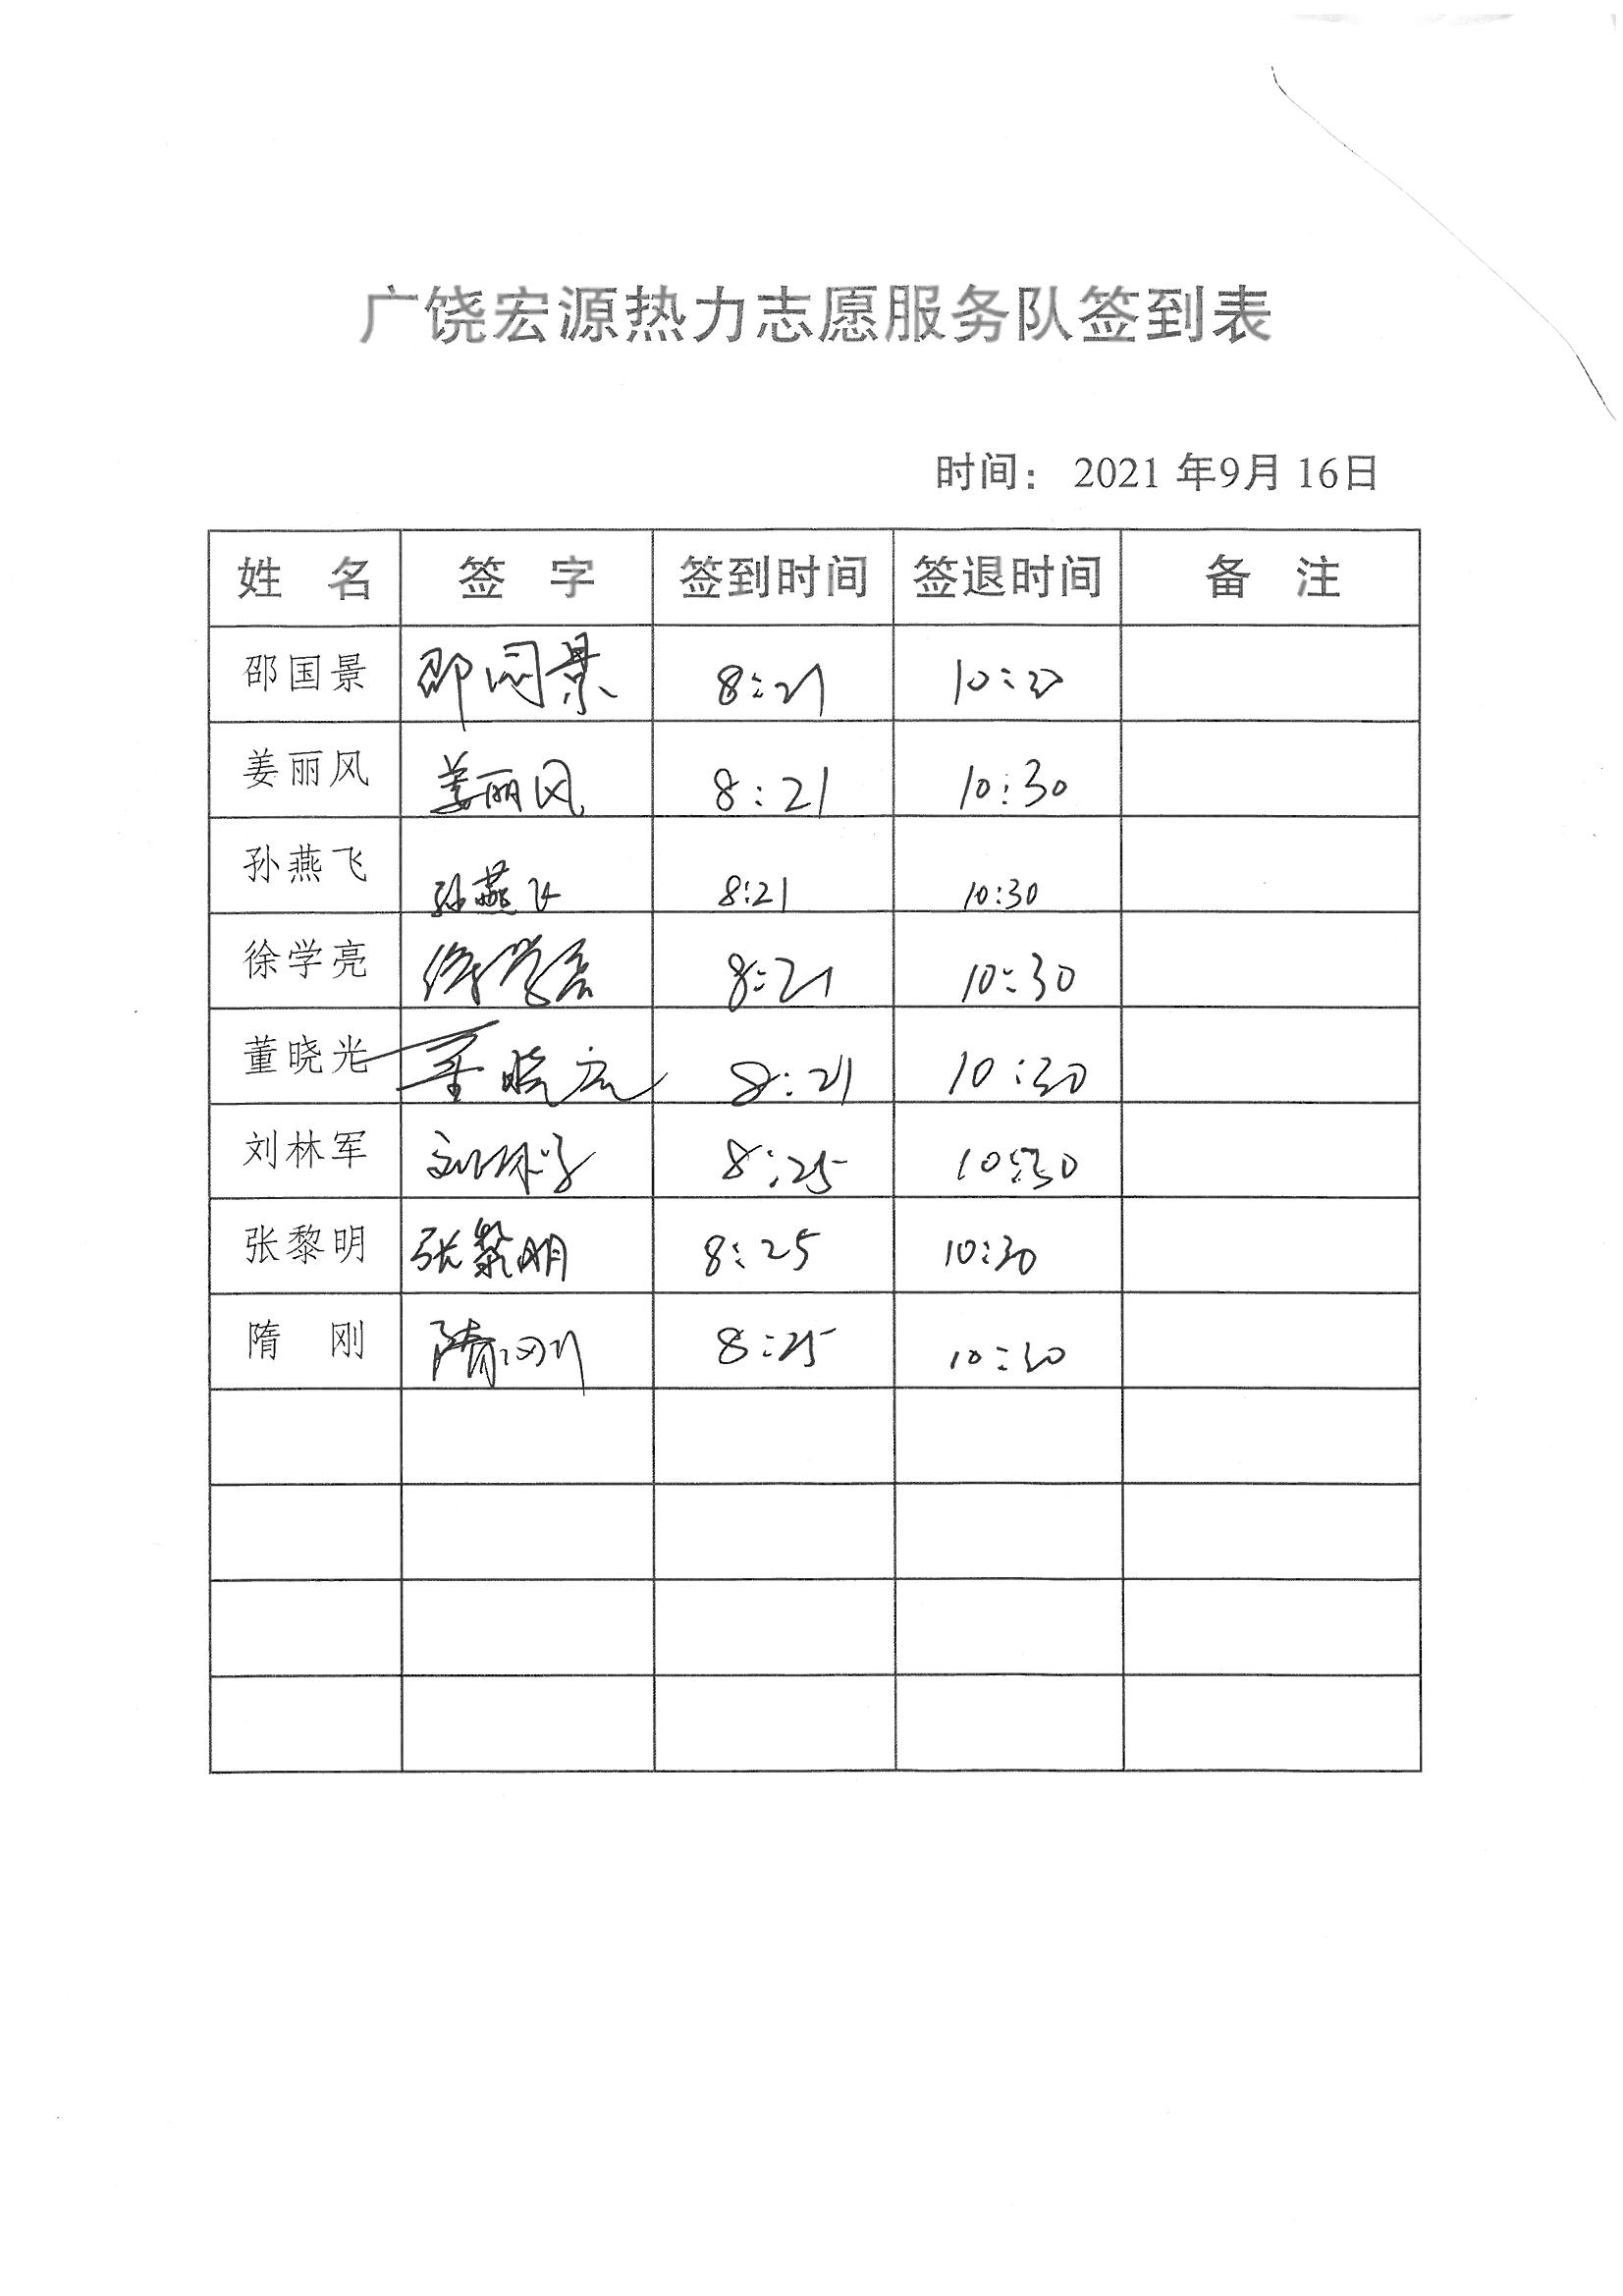 广饶宏源热力志愿服务队签到表
时间： 2021 年9月 16日
姓 名 签 字 签到时间 签退时间 备 注
邵国景 邵国景 8:21 10:30
姜丽风 姜丽风 8:21 10:30
孙燕飞 孙燕飞 8:21 10:30
徐学亮 徐学亮 8:21 10:30
董晓光 董晓光 8:21 10:30
刘林军 刘林军 8:25 10:30
张黎明 张黎明 8:25 10:30
隋 刚 隋刚 8:25 10:30